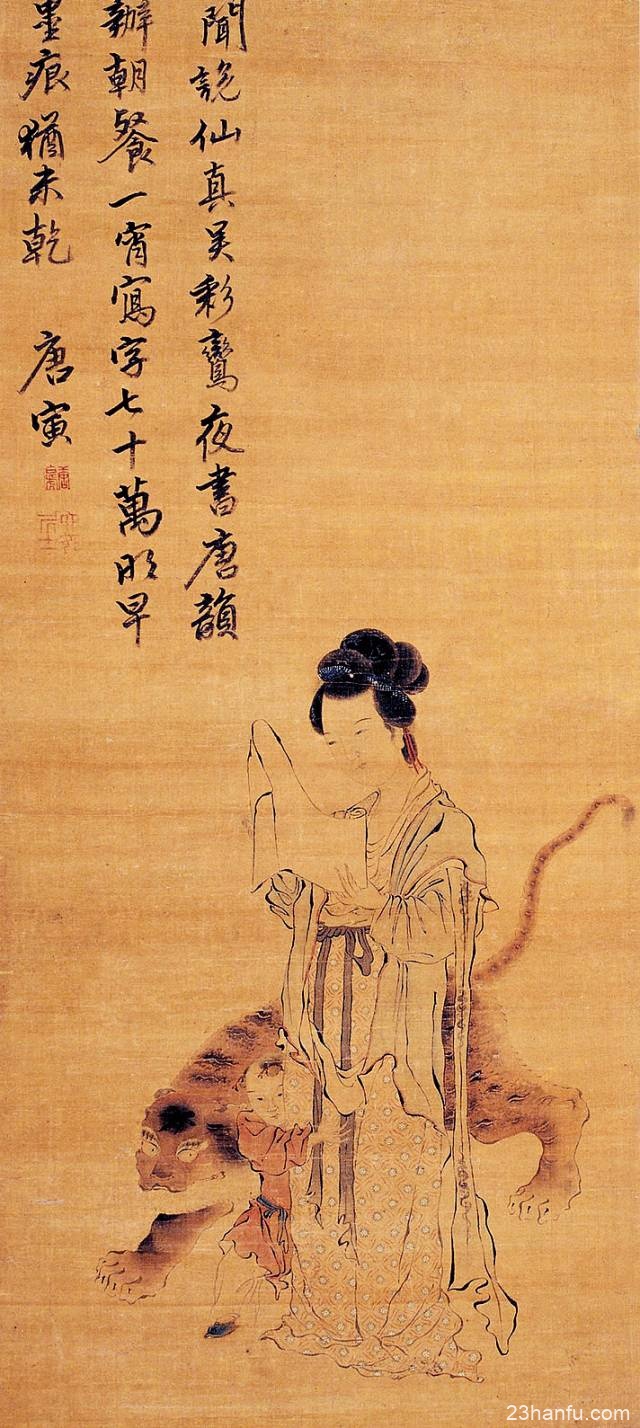 聞說仙真吳彩鸞夜書唐韻
辦朝餐一宵寫字七十萬明早
墨痕猶未乾
唐寅
23hanfu.com